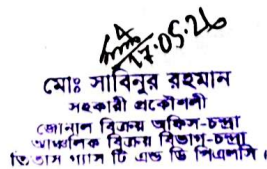 17.05.26
মোঃ সাবিনুর রহমান
সহকারী প্রকৌশলী
জোনাল বিক্রয় অফিস-চন্দ্রা
আঞ্চলিক বিক্রয় বিভাগ-চন্দ্রা
তিতাস গ্যাস টি এন্ড ডি পিএলসি।